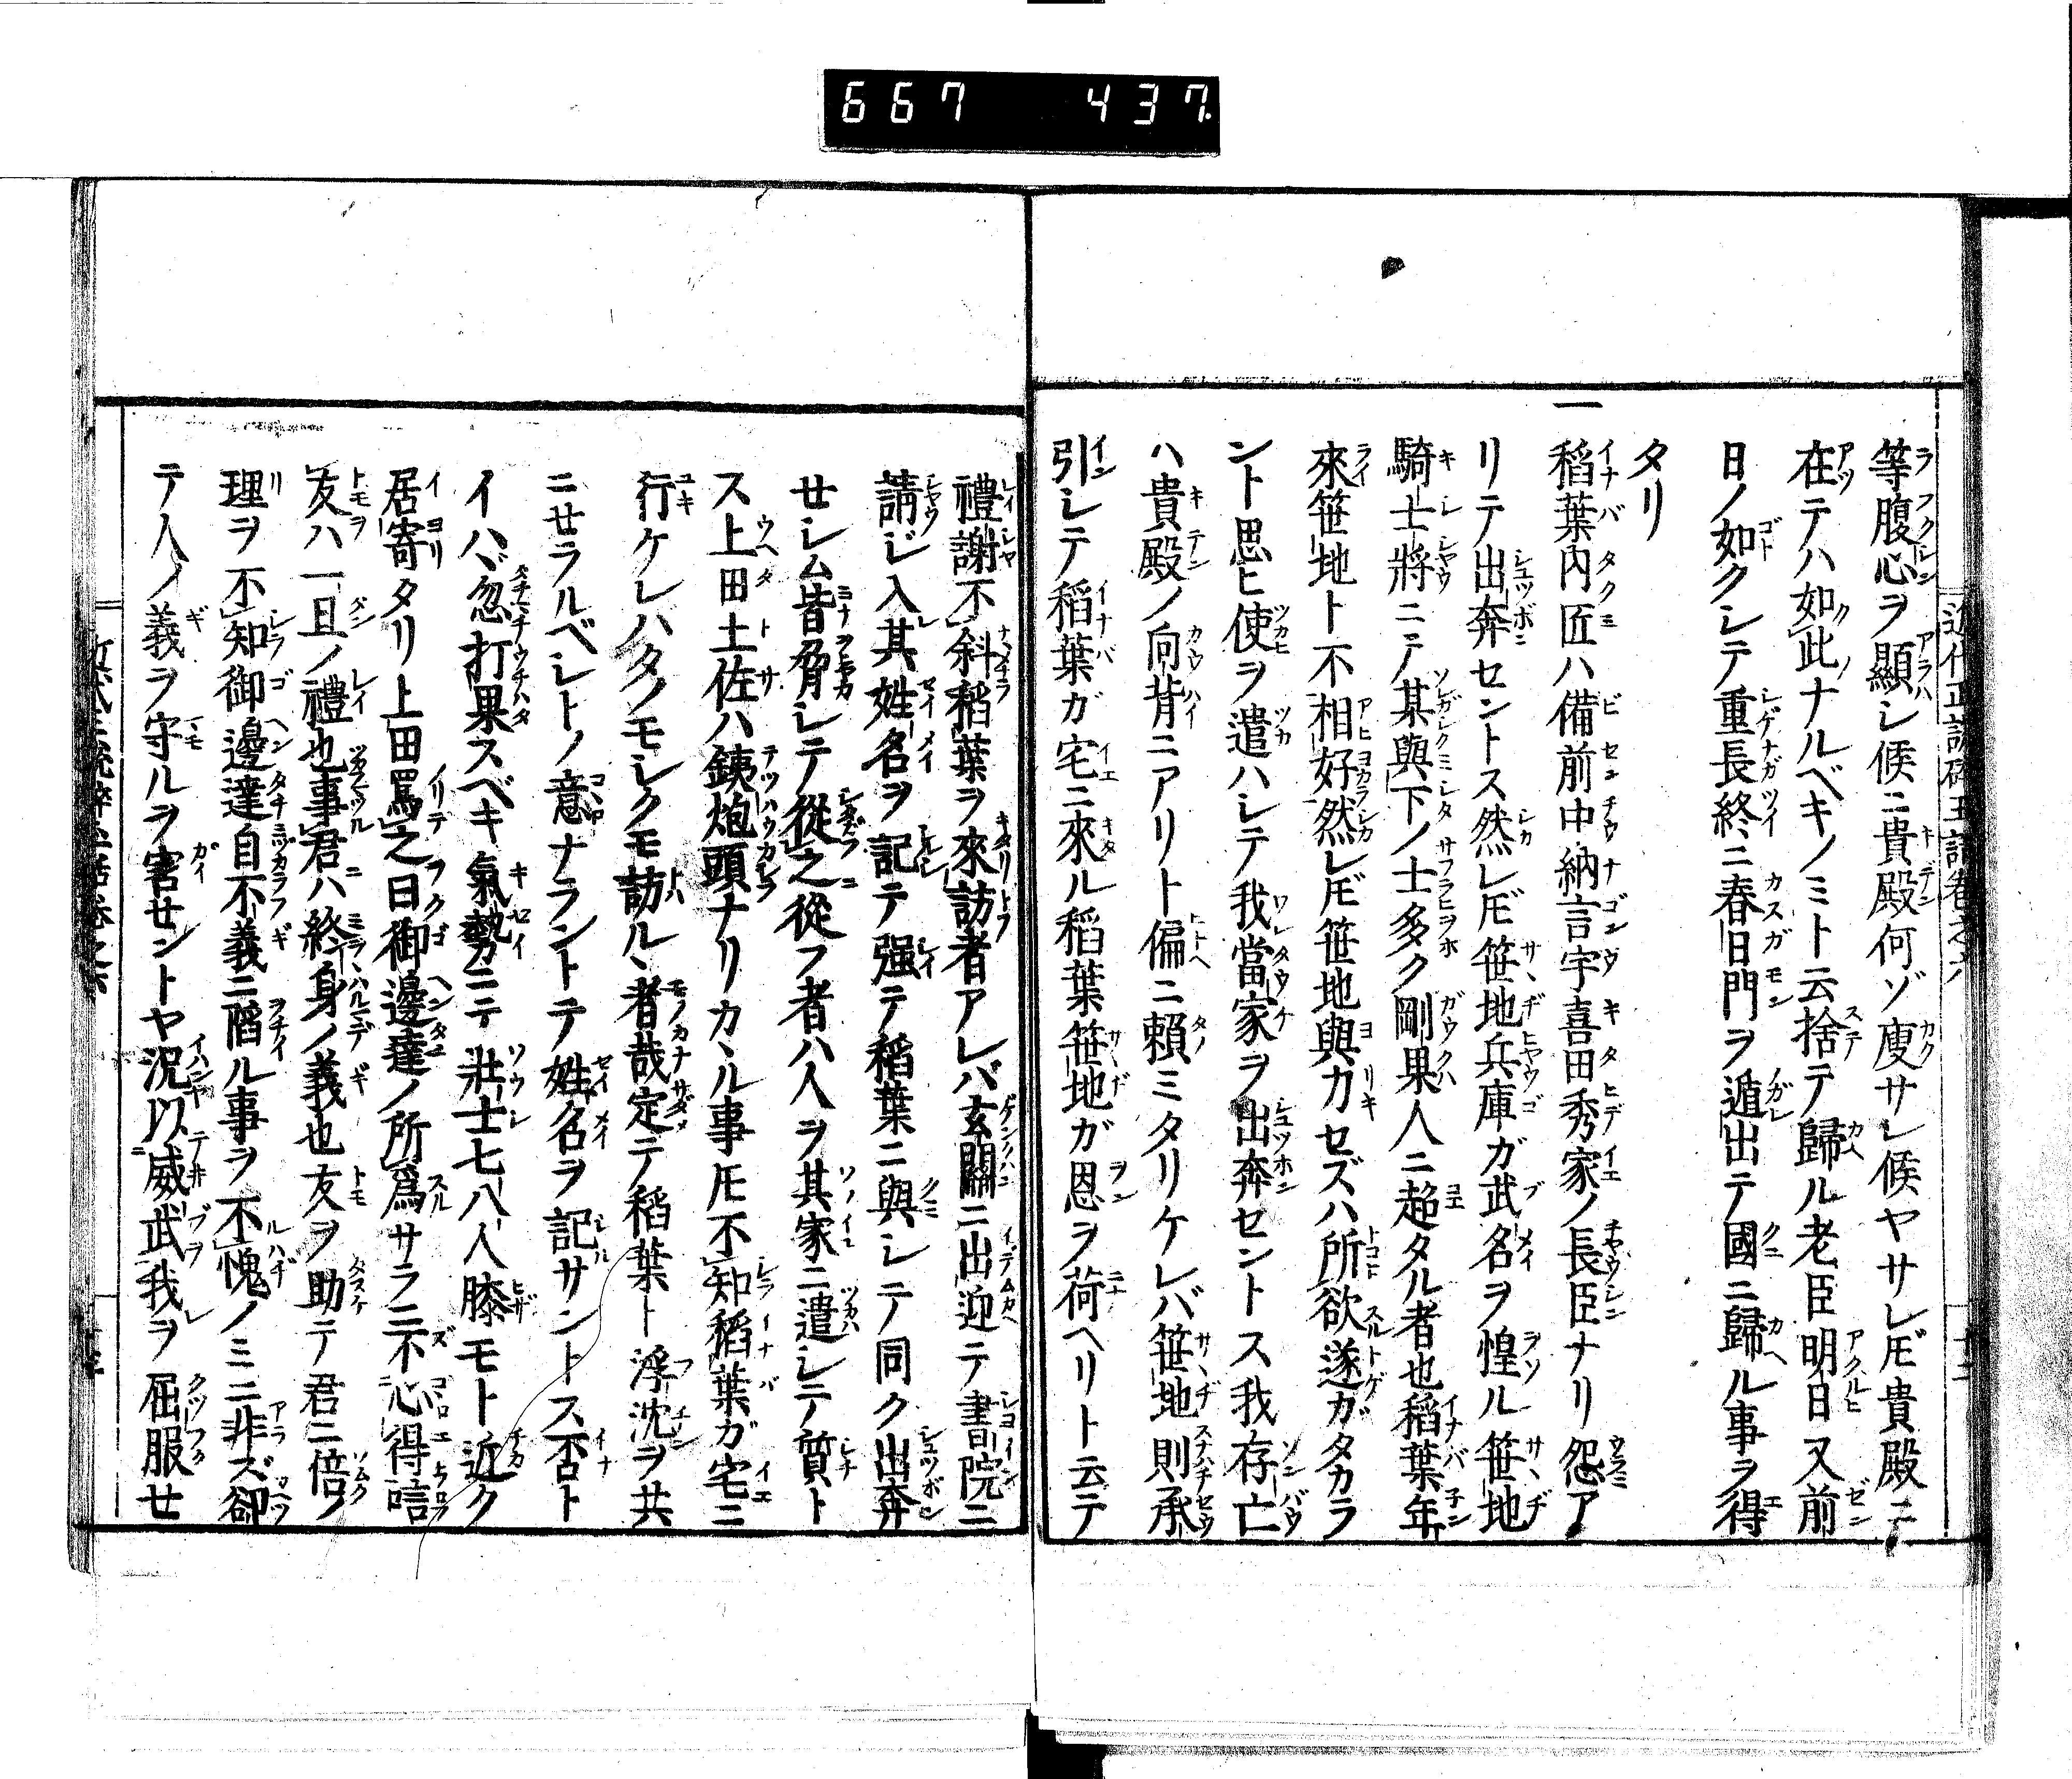 667 437
等腹心ヲ顯シ候ニ貴殿何ゾ廋サレ候ヤサレ𪜈貴殿ニテ
在テハ如此ナルベキノミト云捨テ歸ル老臣明日又前
日ノ如クシテ重長終ニ春日門ヲ遁出テ國ニ歸ル事ヲ得
タリ
一稻葉內匠ハ備前中納言宇喜田秀家ノ長臣ナリ怨ア
リテ出奔セントス然レ𪜈笹地兵庫ガ武名ヲ惶ル笹地
騎士將ニテ某與下ノ士多ク剛果人ニ超タル者也稻葉年
來笹地ト不相好然レ𪜈笹地與力セズハ所欲遂ガタカラ
ント思ヒ使ヲ遣ハシテ我當家ヲ出奔セントス我存亡
ハ貴殿ノ向背ニアリト偏ニ賴ミタリケレバ笹地則承
引シテ稻葉ガ宅ニ來ル稻葉笹地ガ恩ヲ荷ヘリト云テ
禮謝不斜稻葉ヲ來訪者アレバ玄關ニ出迎テ書院ニ
請ジ入其姓名ヲ記テ强テ稻葉ニ與シテ同ク出奔
セシム皆脅シテ從之從フ者ハ人ヲ其家ニ遣シテ質ト
ス上田土佐ハ銕炮頭ナリカヽル事𪜈不知稻葉ガ宅ニ
行ケレハタノモシクモ訪ルヽ者哉定テ稻葉ト浮沈ヲ共
ニセラルベシトノ意ナラントテ姓名ヲ記サントス否ト
イハヾ忽打果スベキ氣勢ニテ壯士七八人膝モト近ク
居寄タリ上田罵之曰御邊達ノ所爲サラニ不心得言
友ハ一旦ノ禮也事君ハ終身ノ義也友ヲ助テ君ニ倍ノ
理ヲ不知御邊達自不義ニ陷ル事ヲ不愧ノミニ非ズ卻
テ人ノ義ヲ守ルヲ害セントヤ況以威武我ヲ屈服セ